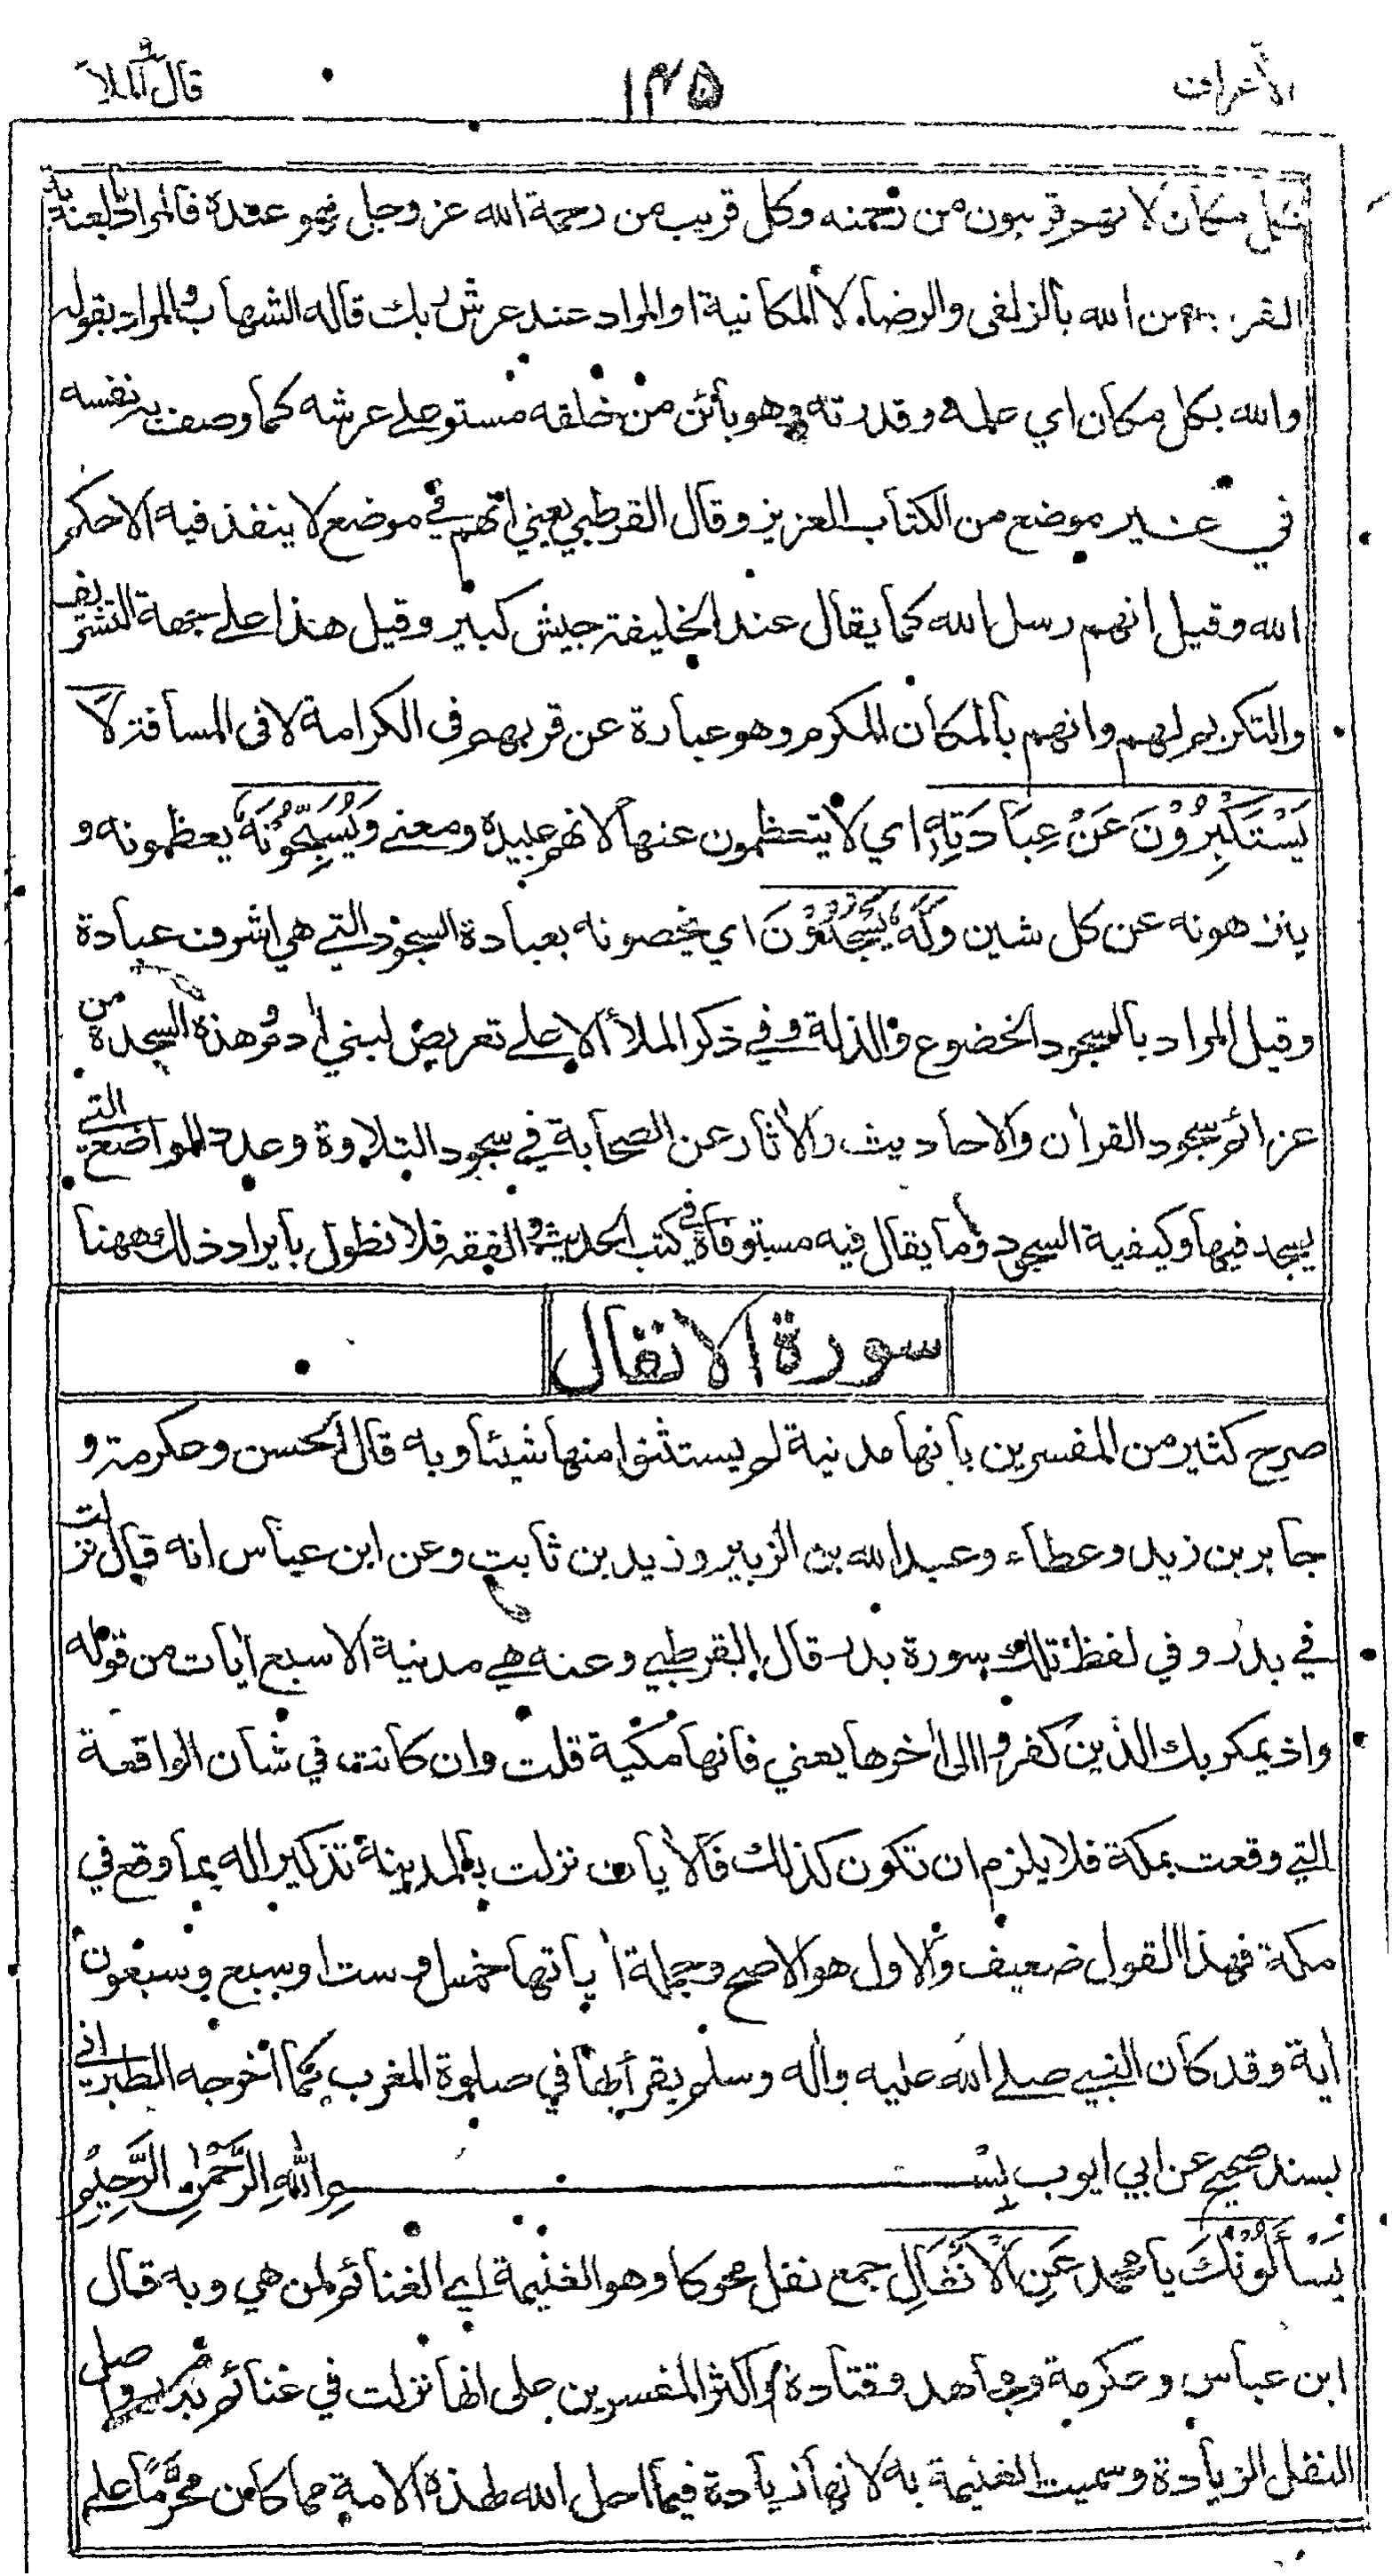 الأعراف
١٣٥
قال الملأ
بكل مكان لانهم قريبون من رحمته وكل قريب من رحمة الله عز وجل فهو عنده فالمراد بالعندية
القرب من الله بالزلفى والرضاء لا المكانية او المراد عند عرش ربك قاله الشهاب والمراد بقوله
والله بكل مكان اي علمه وقدرته وهو بائن من خلقه مستو على عرشه كما وصف به نفسه
في غير موضع من الكتاب العزيز وقال القرطبي يعني انهم في موضع لا ينفذ فيه الا حكم
الله وقيل انهم رسل الله كما يقال عند الخليفة جيش كبير وقيل هذا على جهة التشريف
والتكريم لهم وانهم بالمكان المكرم وهو عبارة عن قربهم في الكرامة لا في المسافة لَا
يَسْتَكْبِرُوْنَ عَنْ عِبَادَتِهٖ اي لا يتعظمون عنها لانهم عبيده ومعنى وَيُسَبِّحُوْنَهٗ يعظمونه و
ينزهونه عن كل شين وَلَهٗ يَسْجُدُوْنَ اي يخصونه بعبادة السجود التي هي اشرف عبادة
وقيل المراد بالسجود الخضوع والذلة وفي ذكر الملأ الاعلى تعريض لبني اٰدم وهذه السجدة من
عزائم سجود القراٰن والاحاديث والاٰثار عن الصحابة في سجود التلاوة وعدد المواضع التي
يسجد فيها وكيفية السجود وما يقال فيه مستوفاة في كتب الحديث والفقه فلا نطول بايراد ذلك ههنا
سورة الانفال
صرح كثير من المفسرين بانها مدنية لم يستثنوا منها شيئا وبه قال الحسن وعكرمة و
جابر بن زيد وعطاء وعبد الله بن الزبير وزيد بن ثابت وعن ابن عباس انه قال نزلت
في بدر وفي لفظ تلك سورة بدر قال القرطبي وعنه هي مدنية الا سبع اٰيات من قوله
واذ يمكر بك الذين كفروا الى اٰخرها يعني فانها مكية قلت وان كانت في شان الواقعة
التي وقعت بمكة فلا يلزم ان تكون كذلك فالاٰيات نزلت بالمدينة تذكيرا له بما وقع في
مكة فهذا القول ضعيف والاول هو الاصح وجملة اٰياتها خمس او ست او سبع وسبعون
اٰية وقد كان النبي صلى الله عليه واٰله وسلم يقرأ بها في صلوة المغرب كما اخرجه الطبراني
بسند صحيح عن ابي ايوب بِسْمِ اللهِ الرَّحْمٰنِ الرَّحِيْمِ
يَسْأَلُوْنَكَ يا محمد عَنِ الْاَنْفَالِ جمع نفل محركا وهو الغنيمة اي الغنائم لمن هي وبه قال
ابن عباس وعكرمة ومجاهد وقتادة واكثر المفسرين على انها نزلت في غنائم بدر واصل
النفل الزيادة وسميت الغنيمة به لانها زيادة فيما احل الله لهذه الامة مما كان محرَّما على